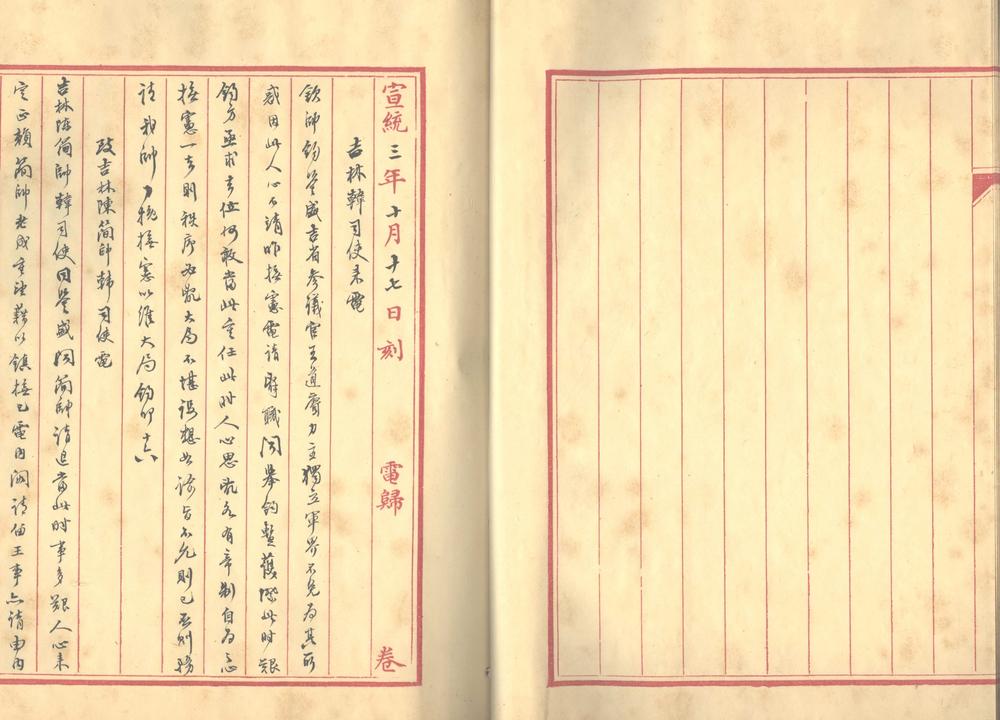 宣統三年十月十七日刻　電歸　卷
吉林韓司使來電
欽帥鈞鑒咸吉省參議官王道齊力主獨立軍界不免為其所
惑因此人心不靖昨撫憲電請辭職閣舉鈞暫護際此時艱
鈞方亟求去位何敢當此重任此時人心思亂各有章制自為之
撫憲一去則秩序必亂大局不堪設想如諭旨不允則已否則務
請我帥力挽撫憲以維大局鈞叩十六
致吉林陳簡帥韓司使電
吉林陳簡帥韓司使同鑒咸閱簡帥請退當此時事多艱人心未
定正賴簡帥老成重望藉以鎮撫已電內閣請留王事亦請由內